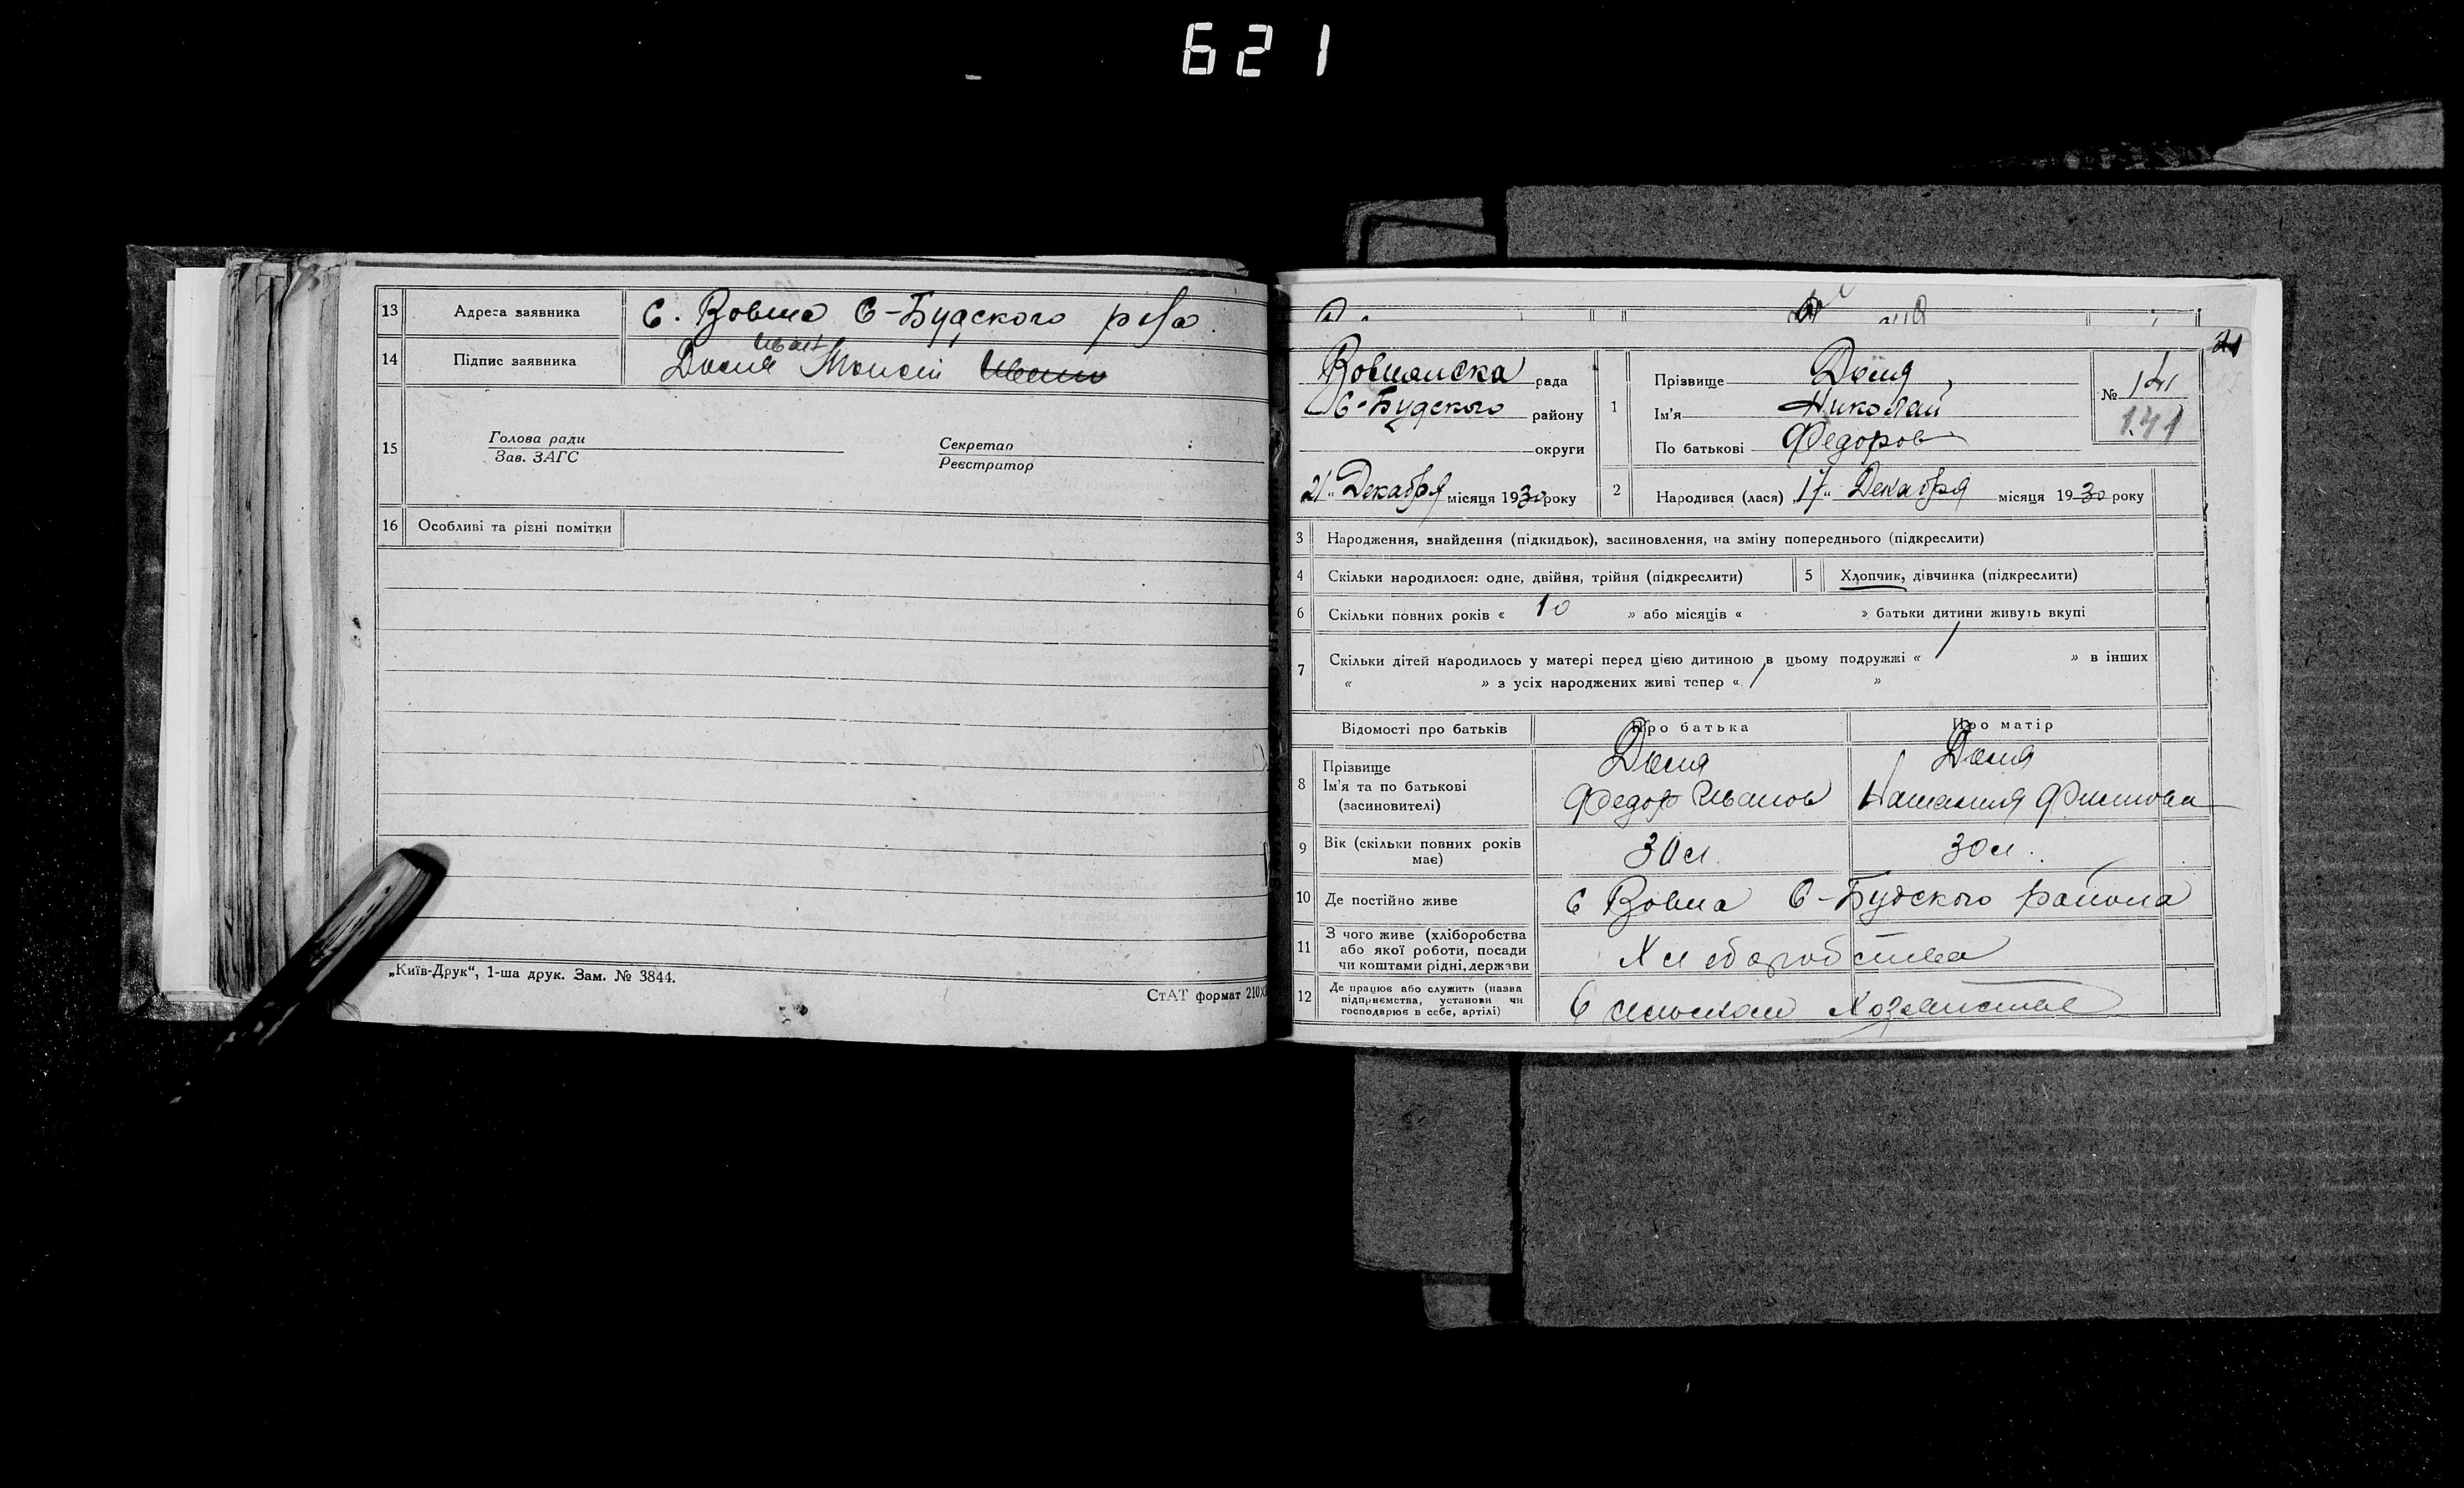 621
13 Адреса заявника С. Вовна С-Будского р-на
14 Підпис заявника Иван
15 Голова ради Секретар
Зав. ЗАГС Реєстратор
16 Особливі та різні помітки
„Київ-Друк“, 1-ша друк. Зам. № 3844.
СтАТ формат 210×
21
Вовнянска рада
С-Будского району
округи
21 Декабря місяця 1930 року
1 Прізвище Доля,
Ім'я Николай
По батькові Федоров
№ 141
141
2 Народився (лася) „17“ Декабря місяця 1930 року
3 Народження, знайдення (підкидьок), засиновлення, на зміну попереднього (підкреслити)
4 Скільки народилося: одне, двійня, трійня (підкреслити) 5 Хлопчик, дівчинка (підкреслити)
6 Скільки повних років « 10 » або місяців « » батьки дитини живуть вкупі
7 Скільки дітей народилось у матері перед цією дитиною в цьому подружжі « 1 » в інших
« » з усіх народжених живі тепер « 1 »
Відомості про батьків Про батька Про матір
8 Прізвище Доля Доля
Ім'я та по батькові Федор Иванов Наталия
(засиновителі)
9 Вік (скільки повних років 30 л. 30 л.
має)
10 Де постійно живе С Вовна С-Будского района
11 З чого живе (хліборобства
або якої роботи, посади Хлеборобства
чи коштами рідні, держави
12 Де працює або служить (назва
підприємства, установи чи С сельском Хозяистве
господарює в себе, артілі)